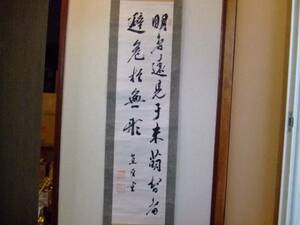 明者遠見于未萌智者
避危於無形